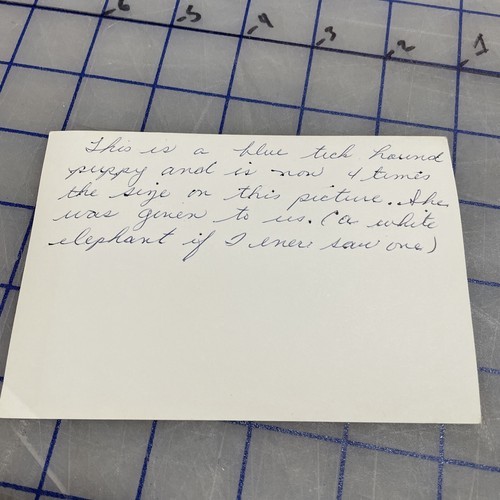 6 5 4 3 2 1
This is a blue tick hound
puppy and is now 4 times
the size on this picture. She
was given to us. (a white
elephant if I ever saw one)